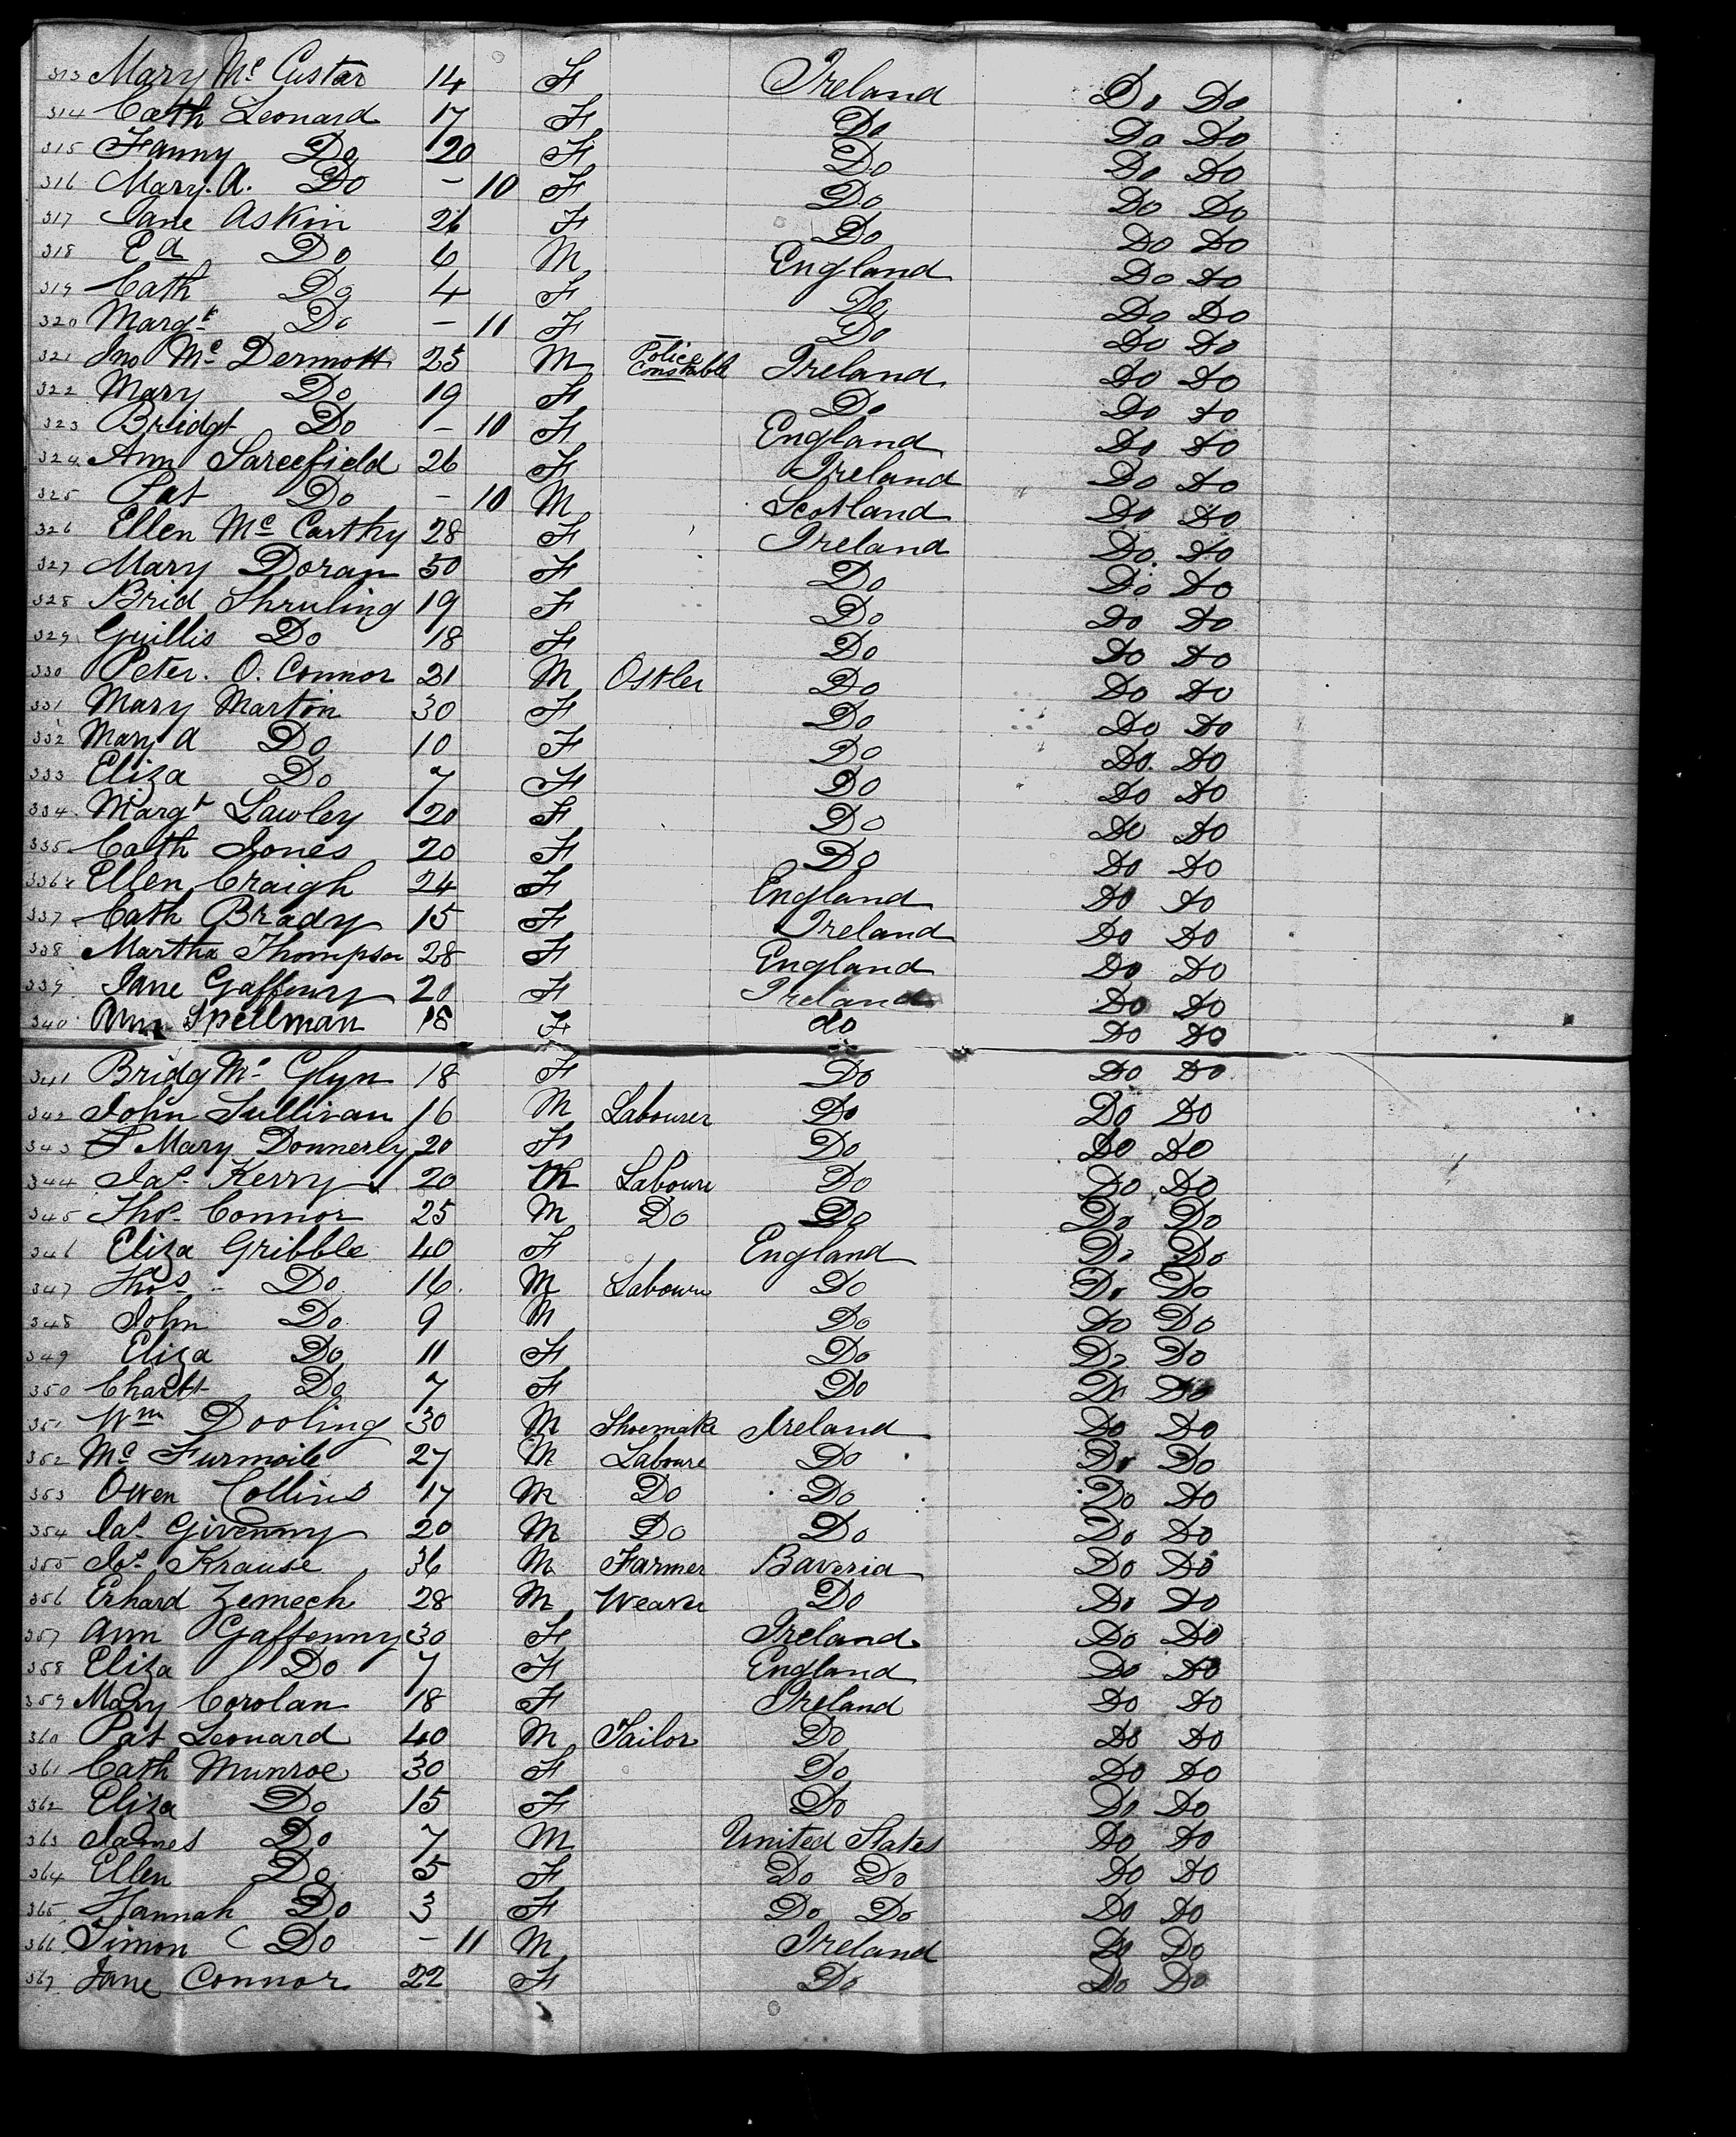 313 Mary Mc Custar 14 F Ireland Do Do
314 Cath Leonard 17 F Do Do Do
315 Fanny Do 20 F Do Do Do
316 Mary. A. Do - 10 F Do Do Do
317 Jane Askin 26 F Do Do Do
318 Ed Do 6 M England Do Do
319 Cath Do 4 F Do Do Do
320 Margt Do - 11 F Do Do Do
321 Jno Mc Dermott 25 M Police Constable Ireland Do Do
322 Mary Do 19 F Do Do Do
323 Bridgt Do - 10 F England Do Do
324 Ann Sarcefield 26 F Ireland Do Do
325 Pat Do - 10 M Scotland Do Do
326 Ellen Mc Carthy 28 F Ireland Do Do
327 Mary Doran 50 F Do Do Do
328 Brid Shruling 19 F Do Do Do
329 Guillis Do 18 F Do Do Do
330 Peter. O. Connor 21 M Ostler Do Do Do
331 Mary Martin 30 F Do Do Do
332 Mary A Do 10 F Do Do Do
333 Eliza Do 7 F Do Do Do
334 Margt Lawley 20 F Do Do Do
335 Cath Jones 20 F Do Do Do
336 Ellen Craigh 24 F England Do Do
337 Cath Brady 15 F Ireland Do Do
338 Martha Thompson 28 F England Do Do
339 Jane Gaffeny 20 F Ireland Do Do
340 Ann Spellman 18 F do Do Do
341 Bridg Mc Glyn 18 F Do Do Do
342 John Sullivan 16 M Labourer Do Do Do
343 Mary Donnerly 20 F Do Do Do
344 Jas Kerry 20 M Laboure Do Do Do
345 Thos Connor 25 M Do Do Do Do
346 Eliza Gribble 40 F England Do Do
347 Thos Do 16 M Laboure Do Do Do
348 John Do 9 M Do Do Do
349 Eliza Do 11 F Do Do Do
350 Charltt Do 7 F Do Do Do
351 Wm Dooling 30 M Shoemake Ireland Do Do
352 Mc Furmoile 27 M Laboure Do Do Do
353 Owen Collins 17 M Do Do Do Do
354 Jas Givenny 20 M Do Do Do Do
355 Jos Krause 36 M Farmer Baveria Do Do
356 Erhard Zemech 28 M Weaver Do Do Do
357 Ann Gaffenny 30 F Ireland Do Do
358 Eliza Do 7 F England Do Do
359 Mary Corolan 18 F Ireland Do Do
360 Pat Leonard 40 M Tailor Do Do Do
361 Cath Munroe 30 F Do Do Do
362 Eliza Do 15 F Do Do Do
363 James Do 7 M United States Do Do
364 Ellen Do 5 F Do Do Do Do
365 Hannah Do 3 F Do Do Do Do
366 Simon Do - 11 M Ireland Do Do
367 Jane Connor 22 F Do Do Do